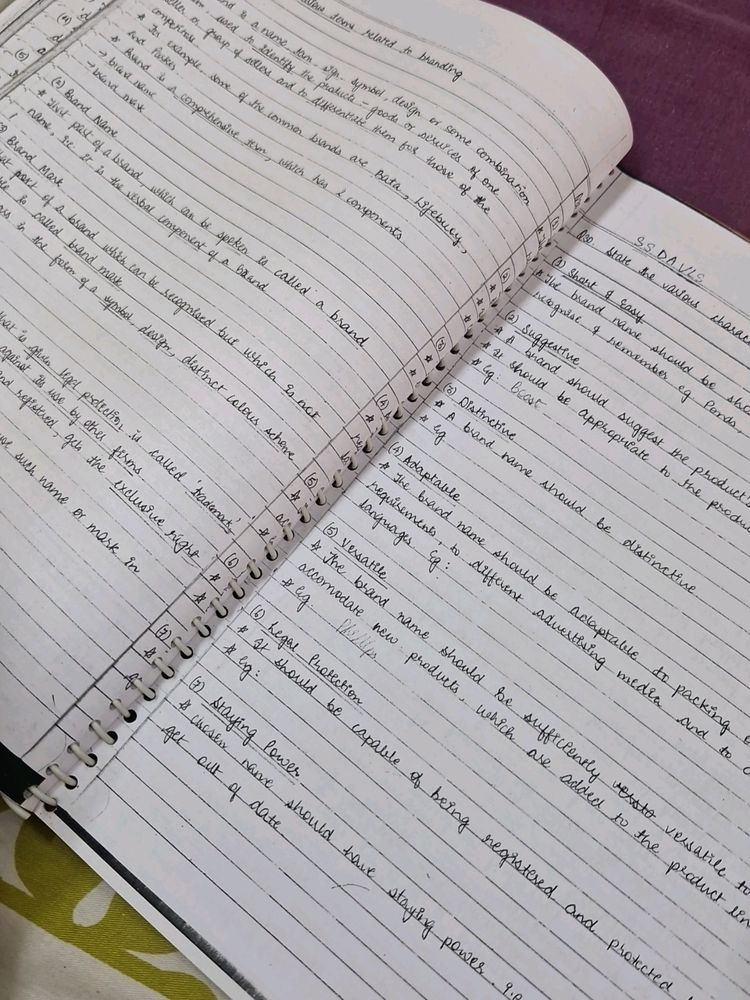 llow terms related to branding
nd is a name term, sign, symbol, design or some combination
used to identify the products - goods or services of one
eller or group of sellers and to differentiate them for those of the
competitors
* For example some of the common brands are Bata, Lifebuoy,
And Parker
* Brand is a comprehensive term, which has 2 components
→ brand name
→ brand mark
(a) Brand Name
* That part of a brand which can be spoken is called a brand
name, i.e. It is the verbal component of a brand
Brand Mark
at part of a brand which can be recognised but which is not
ble is called brand mark
in the form of a symbol, design, distinct colour scheme
that is given legal protection is called 'trademark'
against its use by other firms
and registered, gets the exclusive right
use such name or mark in
SSDAVLS
Q20. State the various charact
(1) Short & Easy
* The brand name should be sho
recognise & remember eg Ponds,
(2) Suggestive
* A brand should suggest the product
* It should be appropriate to the produc
* Eg: Boost
(3) Distinctive
* A brand name should be distinctive
* Eg
(4) Adaptable
* The brand name should be adaptable to packing
requirements, to different advertising media and to
languages Eg:
(5) Versatile
* The brand name should be sufficiently versato versatile to
accomodate new products, which are added to the product lin
* Eg. Phillips
(6) Legal Protection
* It should be capable of being registered and protected
* Eg:
(7) Staying Power
* Chosen name should have staying power.
get out of date